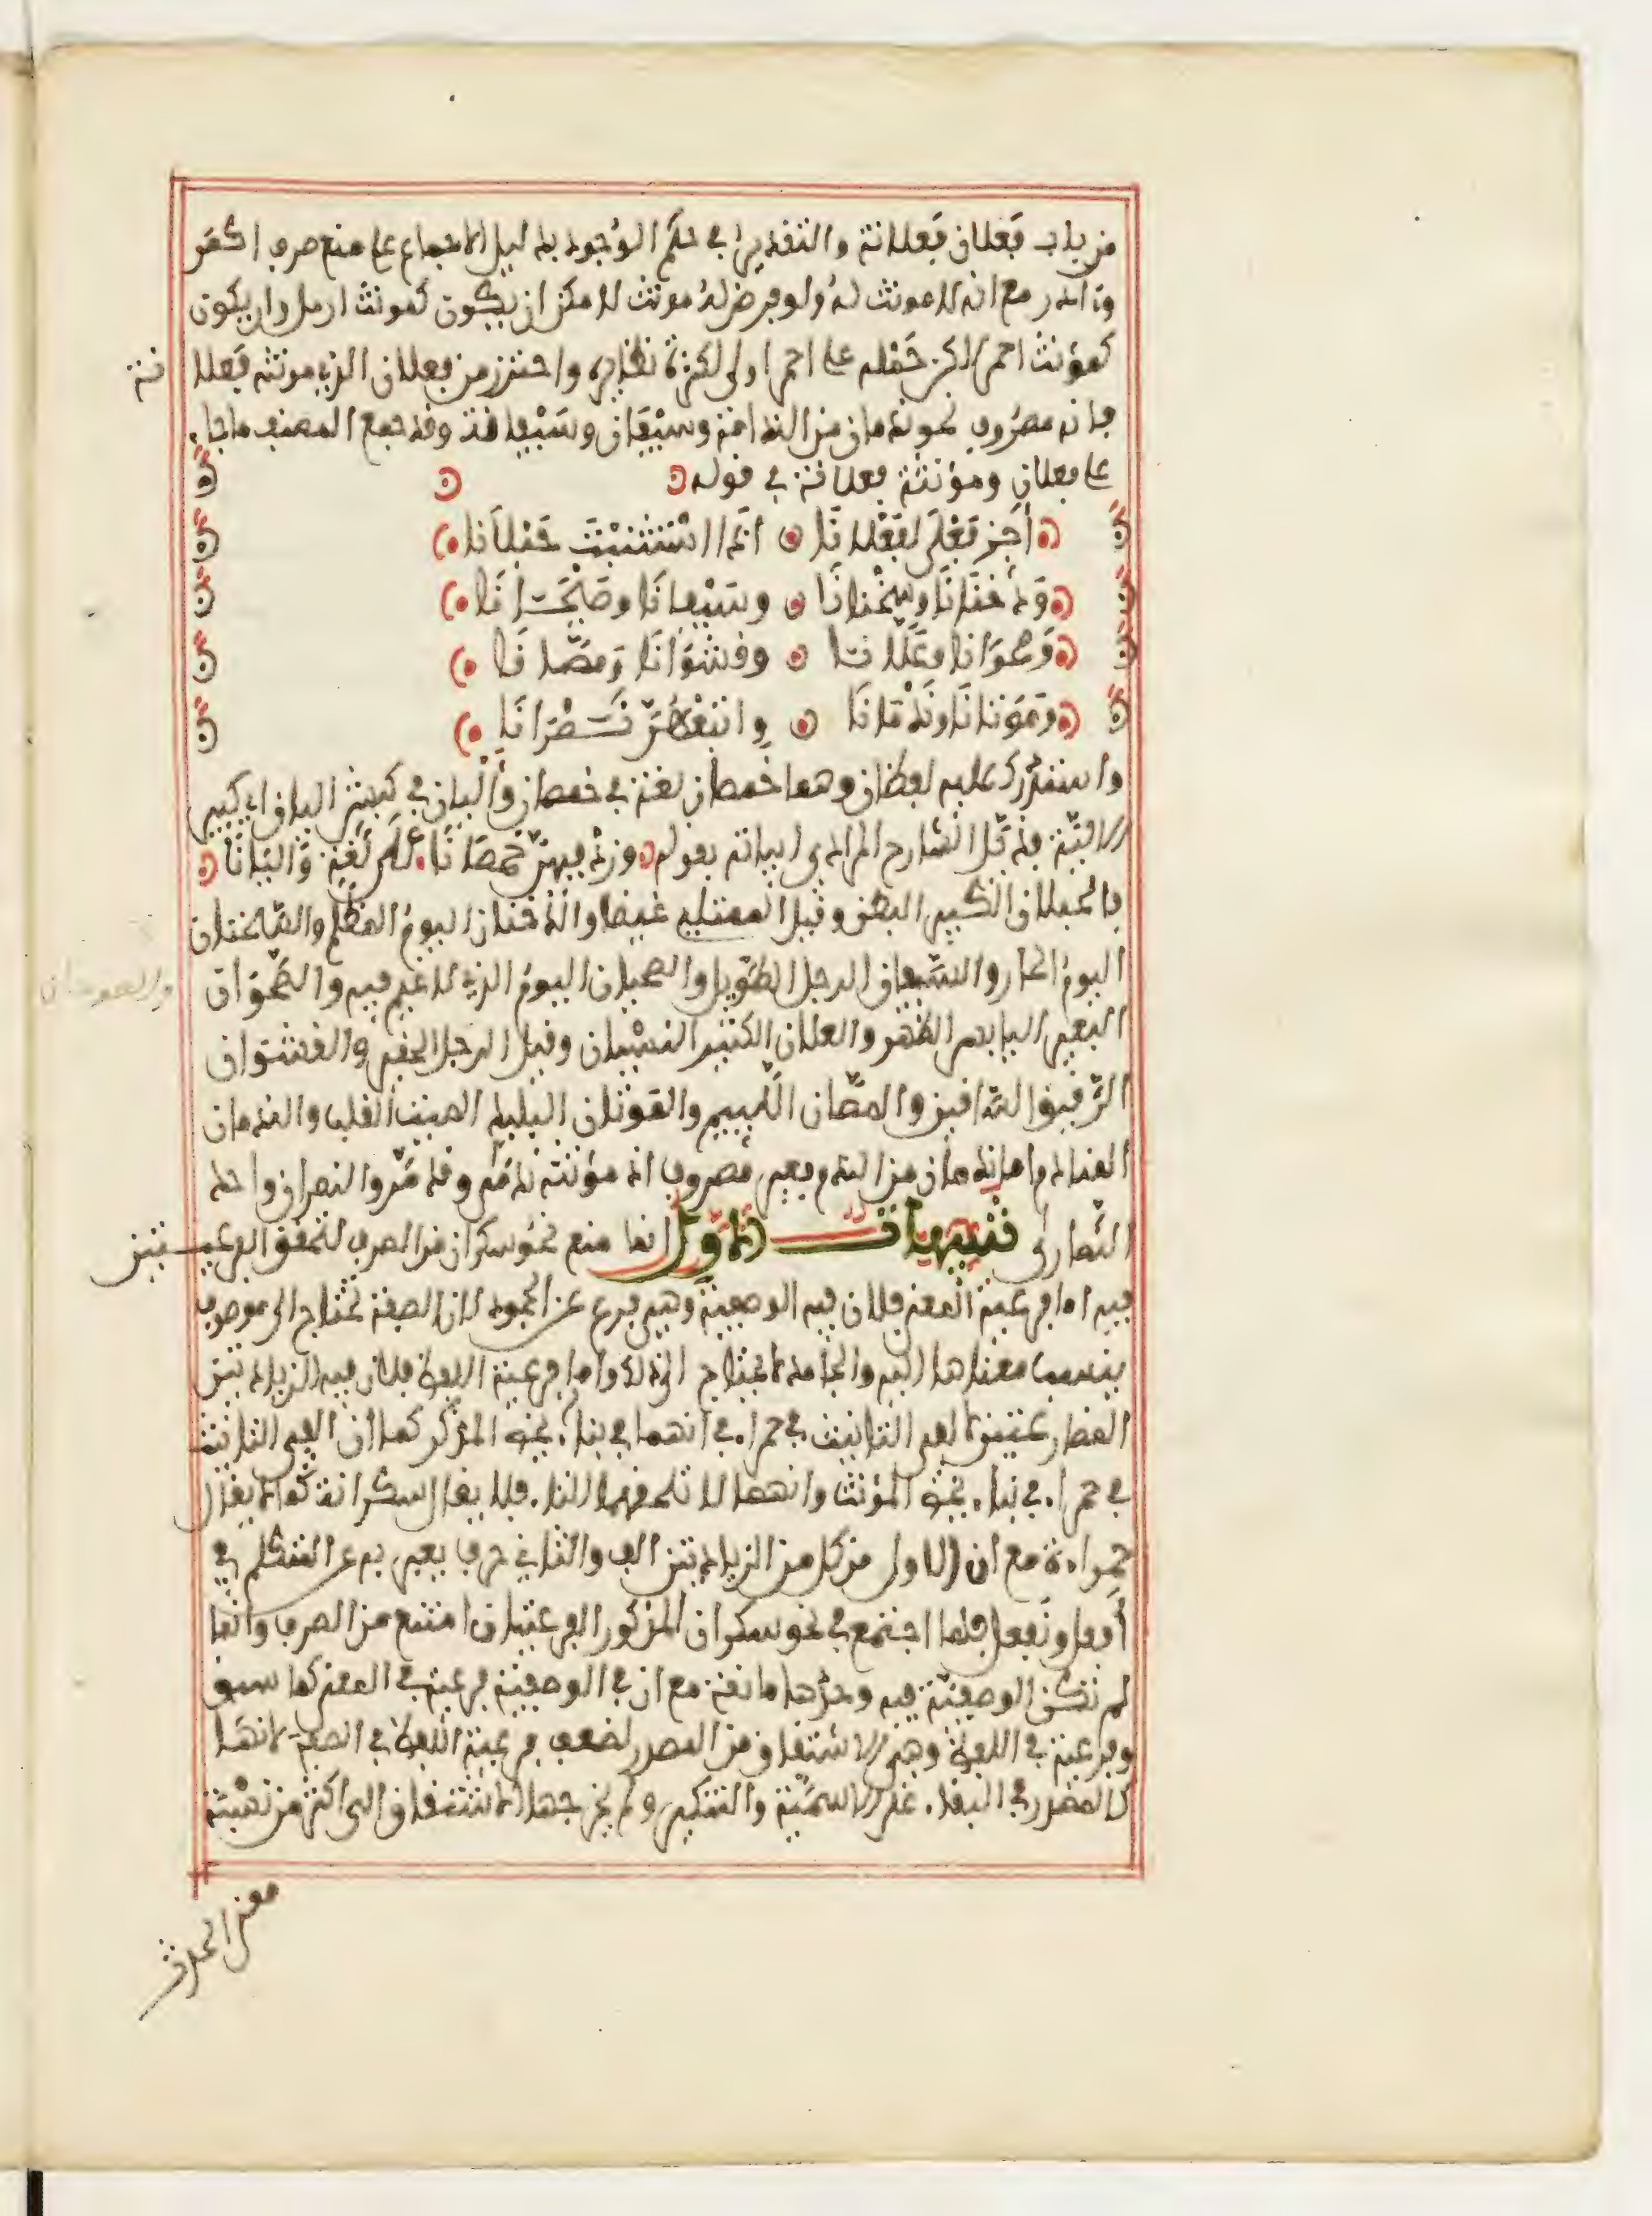 من باب فعلان فعلانة والتقدير في حكم الوجود بدليل الاجماع على منع صرف اكمر
وءادر مع انه لا مونث له ولو فرض له مونث لامكن ان يكون كمونث ارمل وان يكون
كمؤنث احمر لكن حمله على احمر اولى لكثرة نظايره واحترز من فعلان الذي مونثه فعلا نة
فانه مصروف نحو ندمان من المنادمة وسيفان وسيفانة وقد جمع المصنف ما جاء
على فعلان ومؤنثه فعلانة في قوله
أجز فعلى لفعلانا اذا استثنيت حبلانا
ودخنانا وسخنانا وسيفانا وصحيانا
وصوجانا وعلانا وقشوانا ومصانا
وموتانا وندمانا واتبعهن نصرانا
واستدرك عليه لفظان وهما خمصان لغة في خمصان وأليان في كبش اليان اي كبير
الالية فذيل الشارح المرادي ابياته بقوله وزد فيهن خمصانا على لغة وأليانا
فالحبلان الكبير البطن وقيل الممتلي غيضا والدخنان اليوم المظلم والسخنان
اليوم الحار والسيفان الرجل الطويل والصحيان اليوم الذي لا غيم فيه والصوجان
البعير اليابس الظهر والعلان الكثير النسيان وقيل الرجل الحقير والقشوان
الرقيق الساقين والمصان اللييم والموتان البليد الميت القلب والندمان
المنادم اما ندمان من الندم فغير مصروف اذ مؤنثه ندمى وقد مر والنصران واحد
النصارى تنبيهات الاول انما منع نحو سكران من الصرف لتحقق الفرعيتين
فيه اما فرعية المعنى فلان فيه الوصفية وهي فرع عن الجمود لان الصفة تحتاج الى موصوف
ينسب معناها اليه والجامد لا يحتاج الى ذلك واما فرعية اللفظ فلان فيه الزيادتين
المضارعتين لالفي التانيث في حمراء في انهما في بناء يخص المذكر كما أن الفي التانيث
في حمراء في بناء يخص المؤنث وانهما لا تلحقهما التاء فلا يقال سكرانة كما لا يقال
حمراءة مع ان الاولى من كل من الزيادتين الف والثاني حرف يعبر به عن المتكلم في
أفعل ونفعل فلما اجتمع في نحو سكران المذكور الفرعيتان امتنع من الصرف وانما
لم تكن الوصفية فيه وحدها مانعة مع ان في الوصفية فرعية في المعنى كما سبق
وفرعية في اللفظ وهي الاشتقاق من المصدر لضعف فرعية اللفظ في الصفة لانها
كالمصدر في البقاء على الاسمية والتنكير ولم يخرجها الاشتقاق الى اكثر من نسبة
معنى الحدث